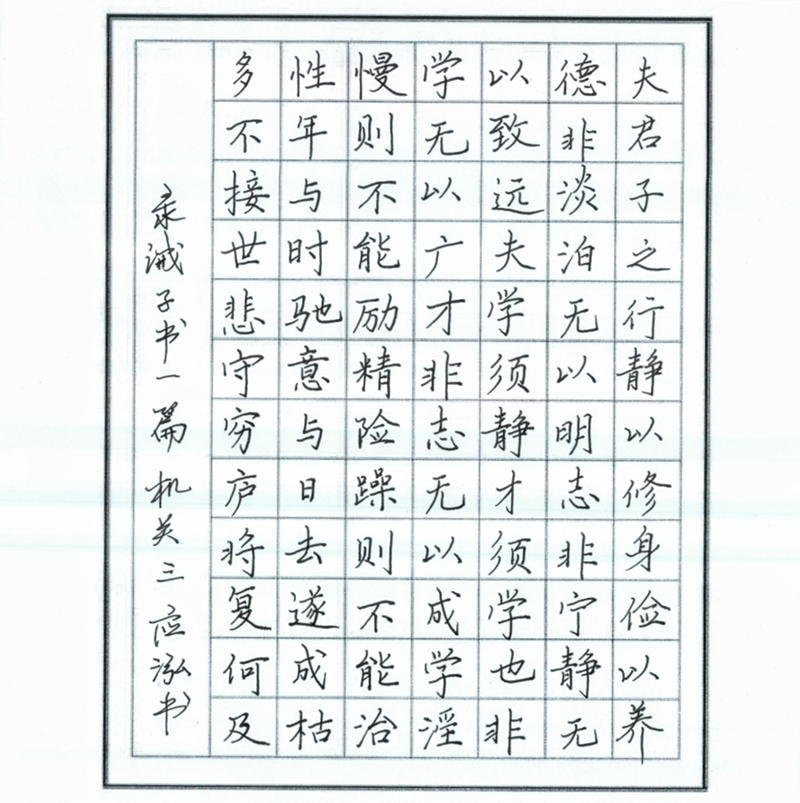 夫君子之行静以修身俭以养
德非淡泊无以明志非宁静无
以致远夫学须静才须学也非
学无以广才非志无以成学淫
慢则不能励精险躁则不能治
性年与时驰意与日去遂成枯
多不接世悲守穷庐将复何及
录诫子书一篇 机关三 应泓书